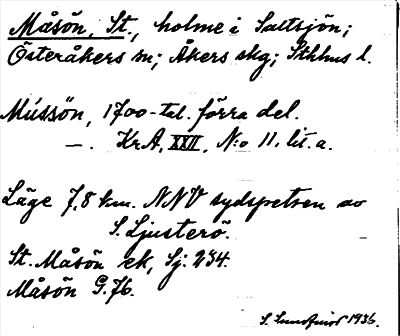 Måsön, St., holme i Saltsjön;
Österåkers sn; Åkers skg; Sthlms l.
Müssön, 1700-tal. förra del.
—. KrA, XXII, N:o 11. lit. a.
Läge 7,8 km. NNV sydspetsen av
S. Ljusterö.
St. Måsön ek, Sj: 234.
Måsön G.76.
S. 1936.